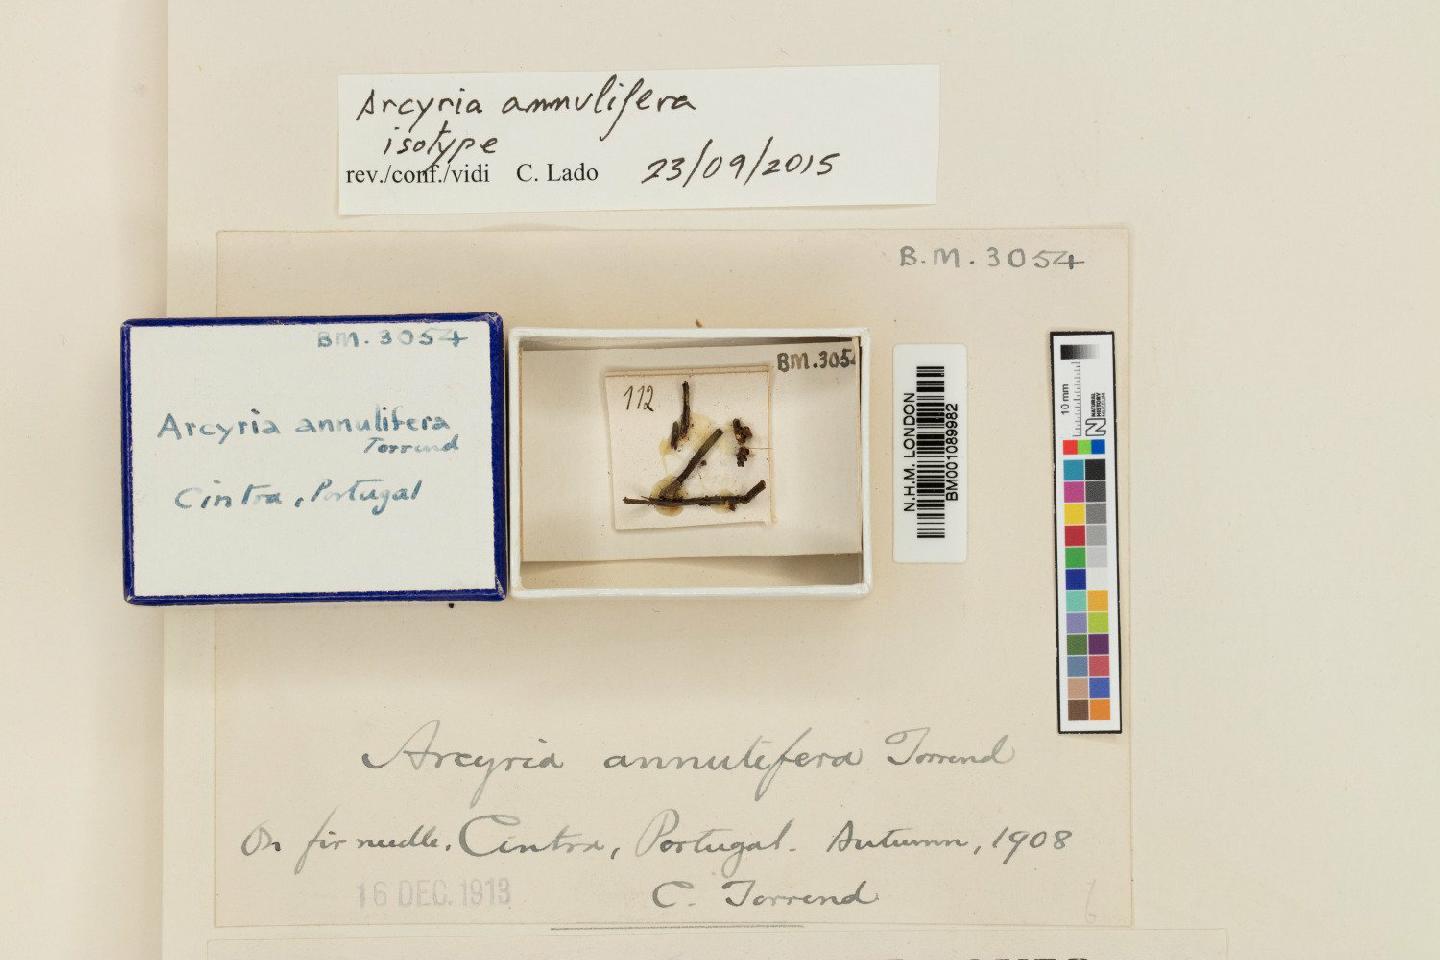 Arcyria annulifera
isotype
rev./conf./vidi C. Lado 23/09/2015
B.M. 3054
BM. 3054
Arcyria annulifera
Torrend
Cintra, Portugal
BM. 3054
112
N.H.M. LONDON
BM001089982
10 mm
NATURAL HISTORY
Arcyria annulifera Torrend
On fir needle. Cintra, Portugal. Autumn, 1908
16 DEC. 1913
C. Torrend